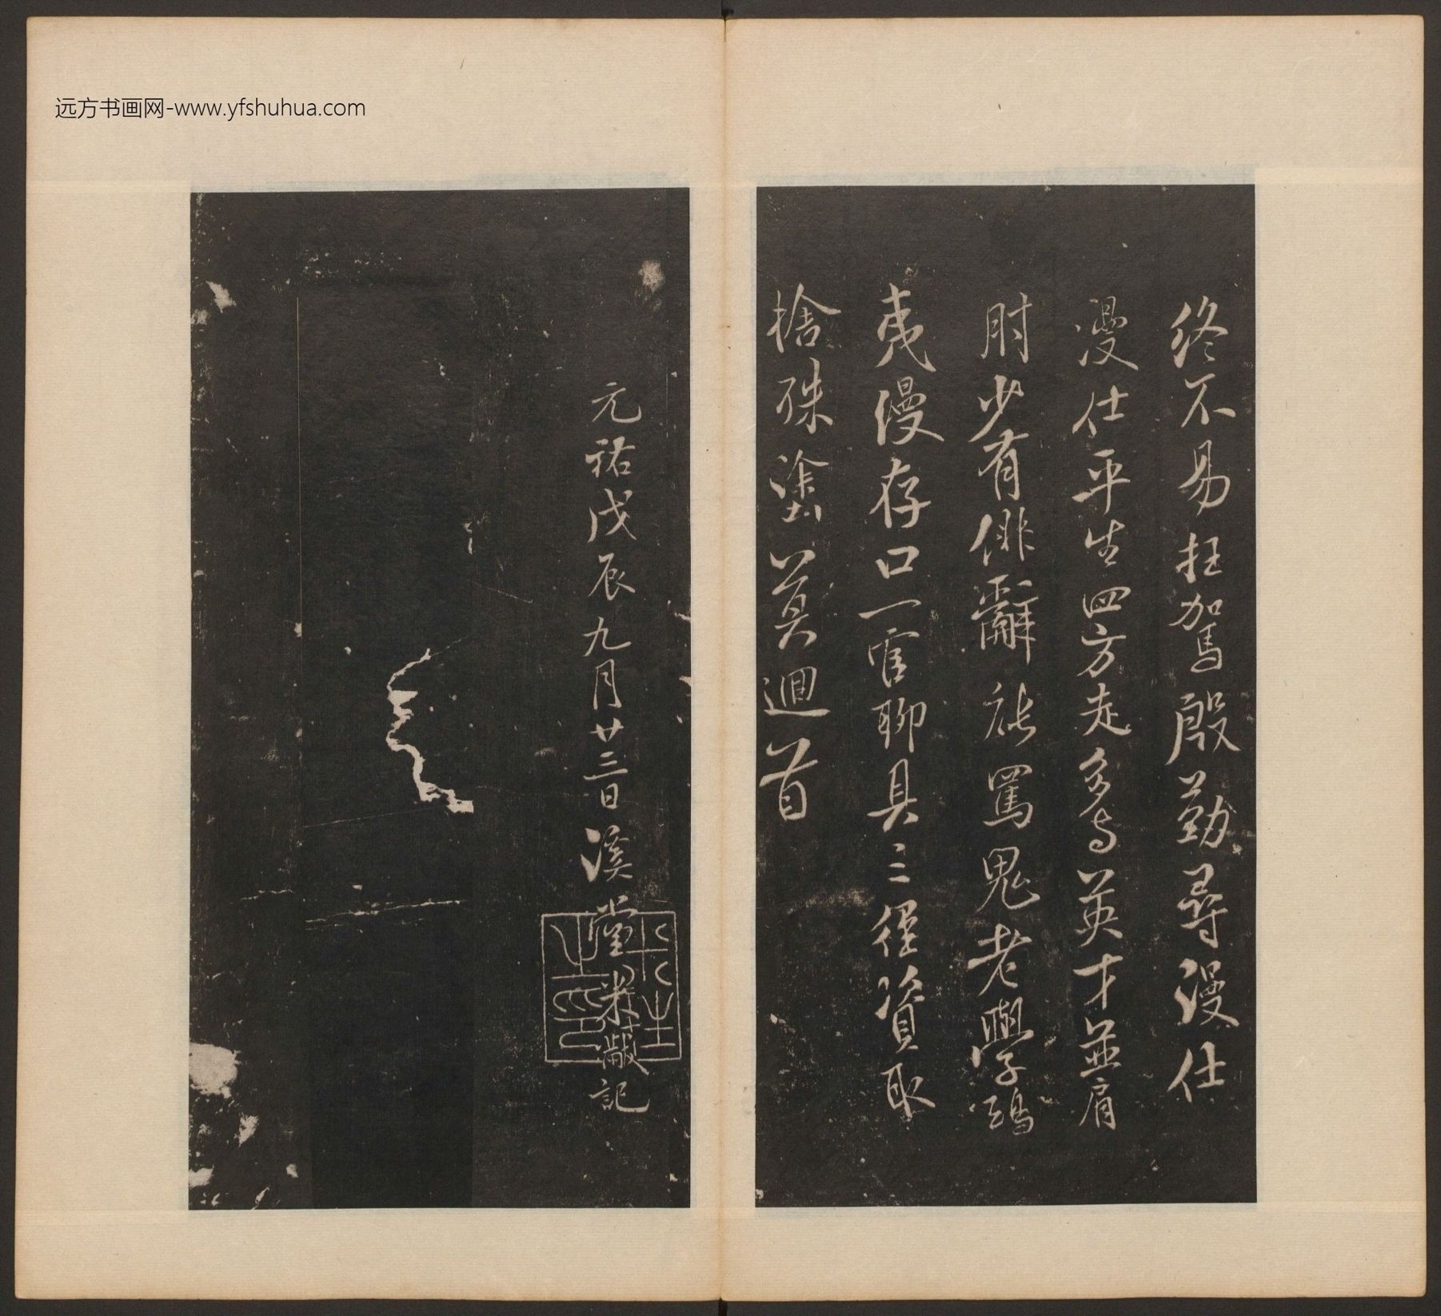 远方书画网-www.yfshuhua.com
終不易枉駕殷勤尋漫仕
漫仕平生四方走多与英才並肩
肘少有俳辭能罵鬼老學鴟
夷漫存口一官聊具三徑資取
捨殊塗莫迴首
元祐戊辰九月廿三日溪堂米黻記